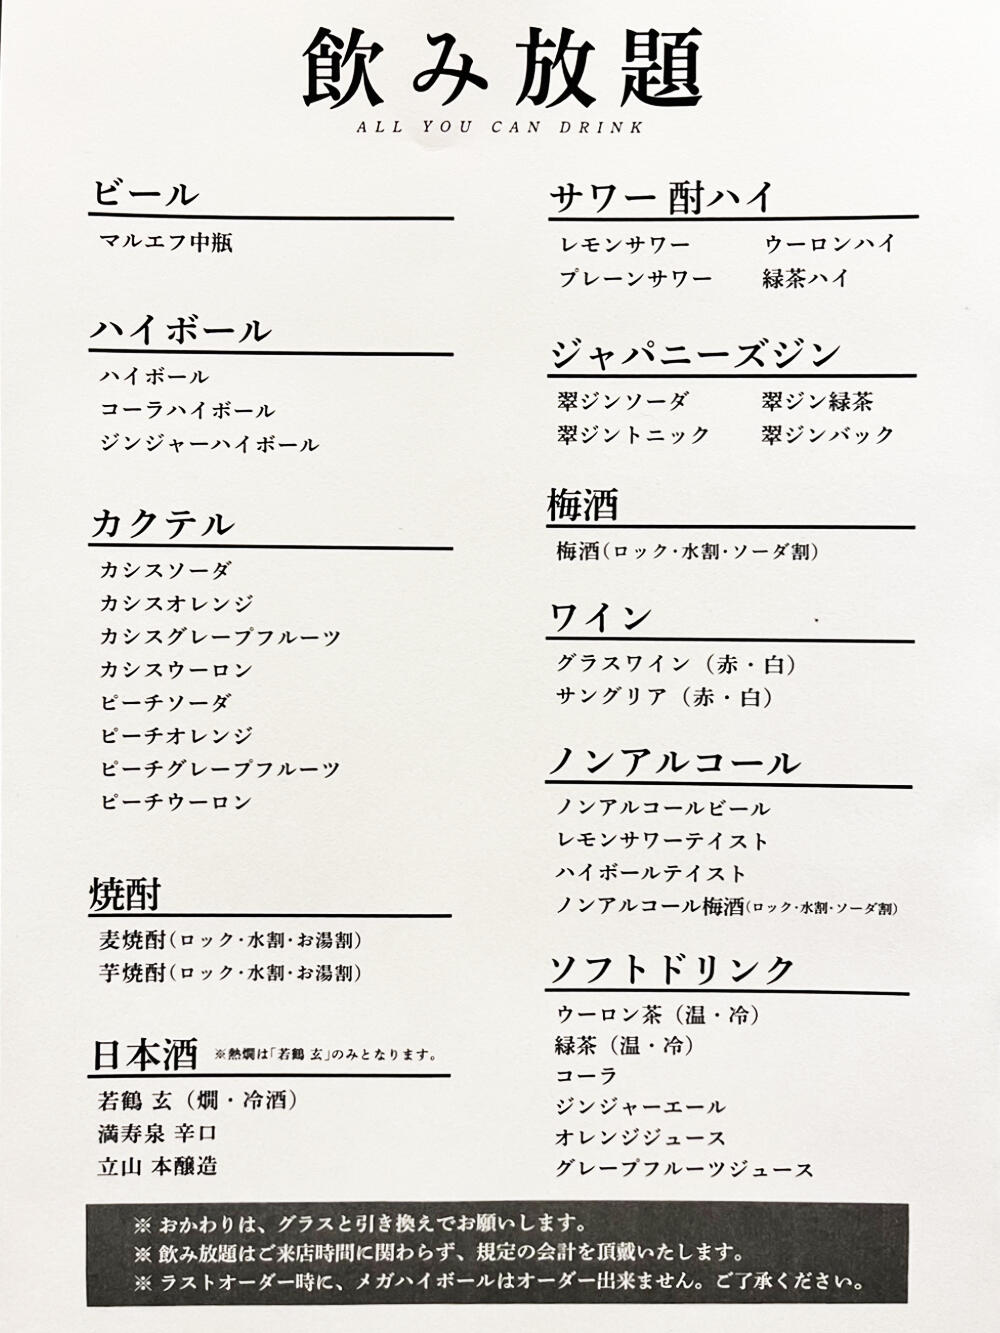 飲み放題
ALL YOU CAN DRINK
ビール
マルエフ中瓶
ハイボール
ハイボール
コーラハイボール
ジンジャーハイボール
カクテル
カシスソーダ
カシスオレンジ
カシスグレープフルーツ
カシスウーロン
ピーチソーダ
ピーチオレンジ
ピーチグレープフルーツ
ピーチウーロン
焼酎
麦焼酎(ロック・水割・お湯割)
芋焼酎(ロック・水割・お湯割)
日本酒 ※熱燗は「若鶴 玄」のみとなります。
若鶴 玄（燗・冷酒）
満寿泉 辛口
立山 本醸造
サワー 酎ハイ
レモンサワー ウーロンハイ
プレーンサワー 緑茶ハイ
ジャパニーズジン
翠ジンソーダ 翠ジン緑茶
翠ジントニック 翠ジンバック
梅酒
梅酒(ロック・水割・ソーダ割)
ワイン
グラスワイン（赤・白）
サングリア（赤・白）
ノンアルコール
ノンアルコールビール
レモンサワーテイスト
ハイボールテイスト
ノンアルコール梅酒(ロック・水割・ソーダ割)
ソフトドリンク
ウーロン茶（温・冷）
緑茶（温・冷）
コーラ
ジンジャーエール
オレンジジュース
グレープフルーツジュース
※ おかわりは、グラスと引き換えでお願いします。
※ 飲み放題はご来店時間に関わらず、規定の会計を頂戴いたします。
※ ラストオーダー時に、メガハイボールはオーダー出来ません。ご了承ください。